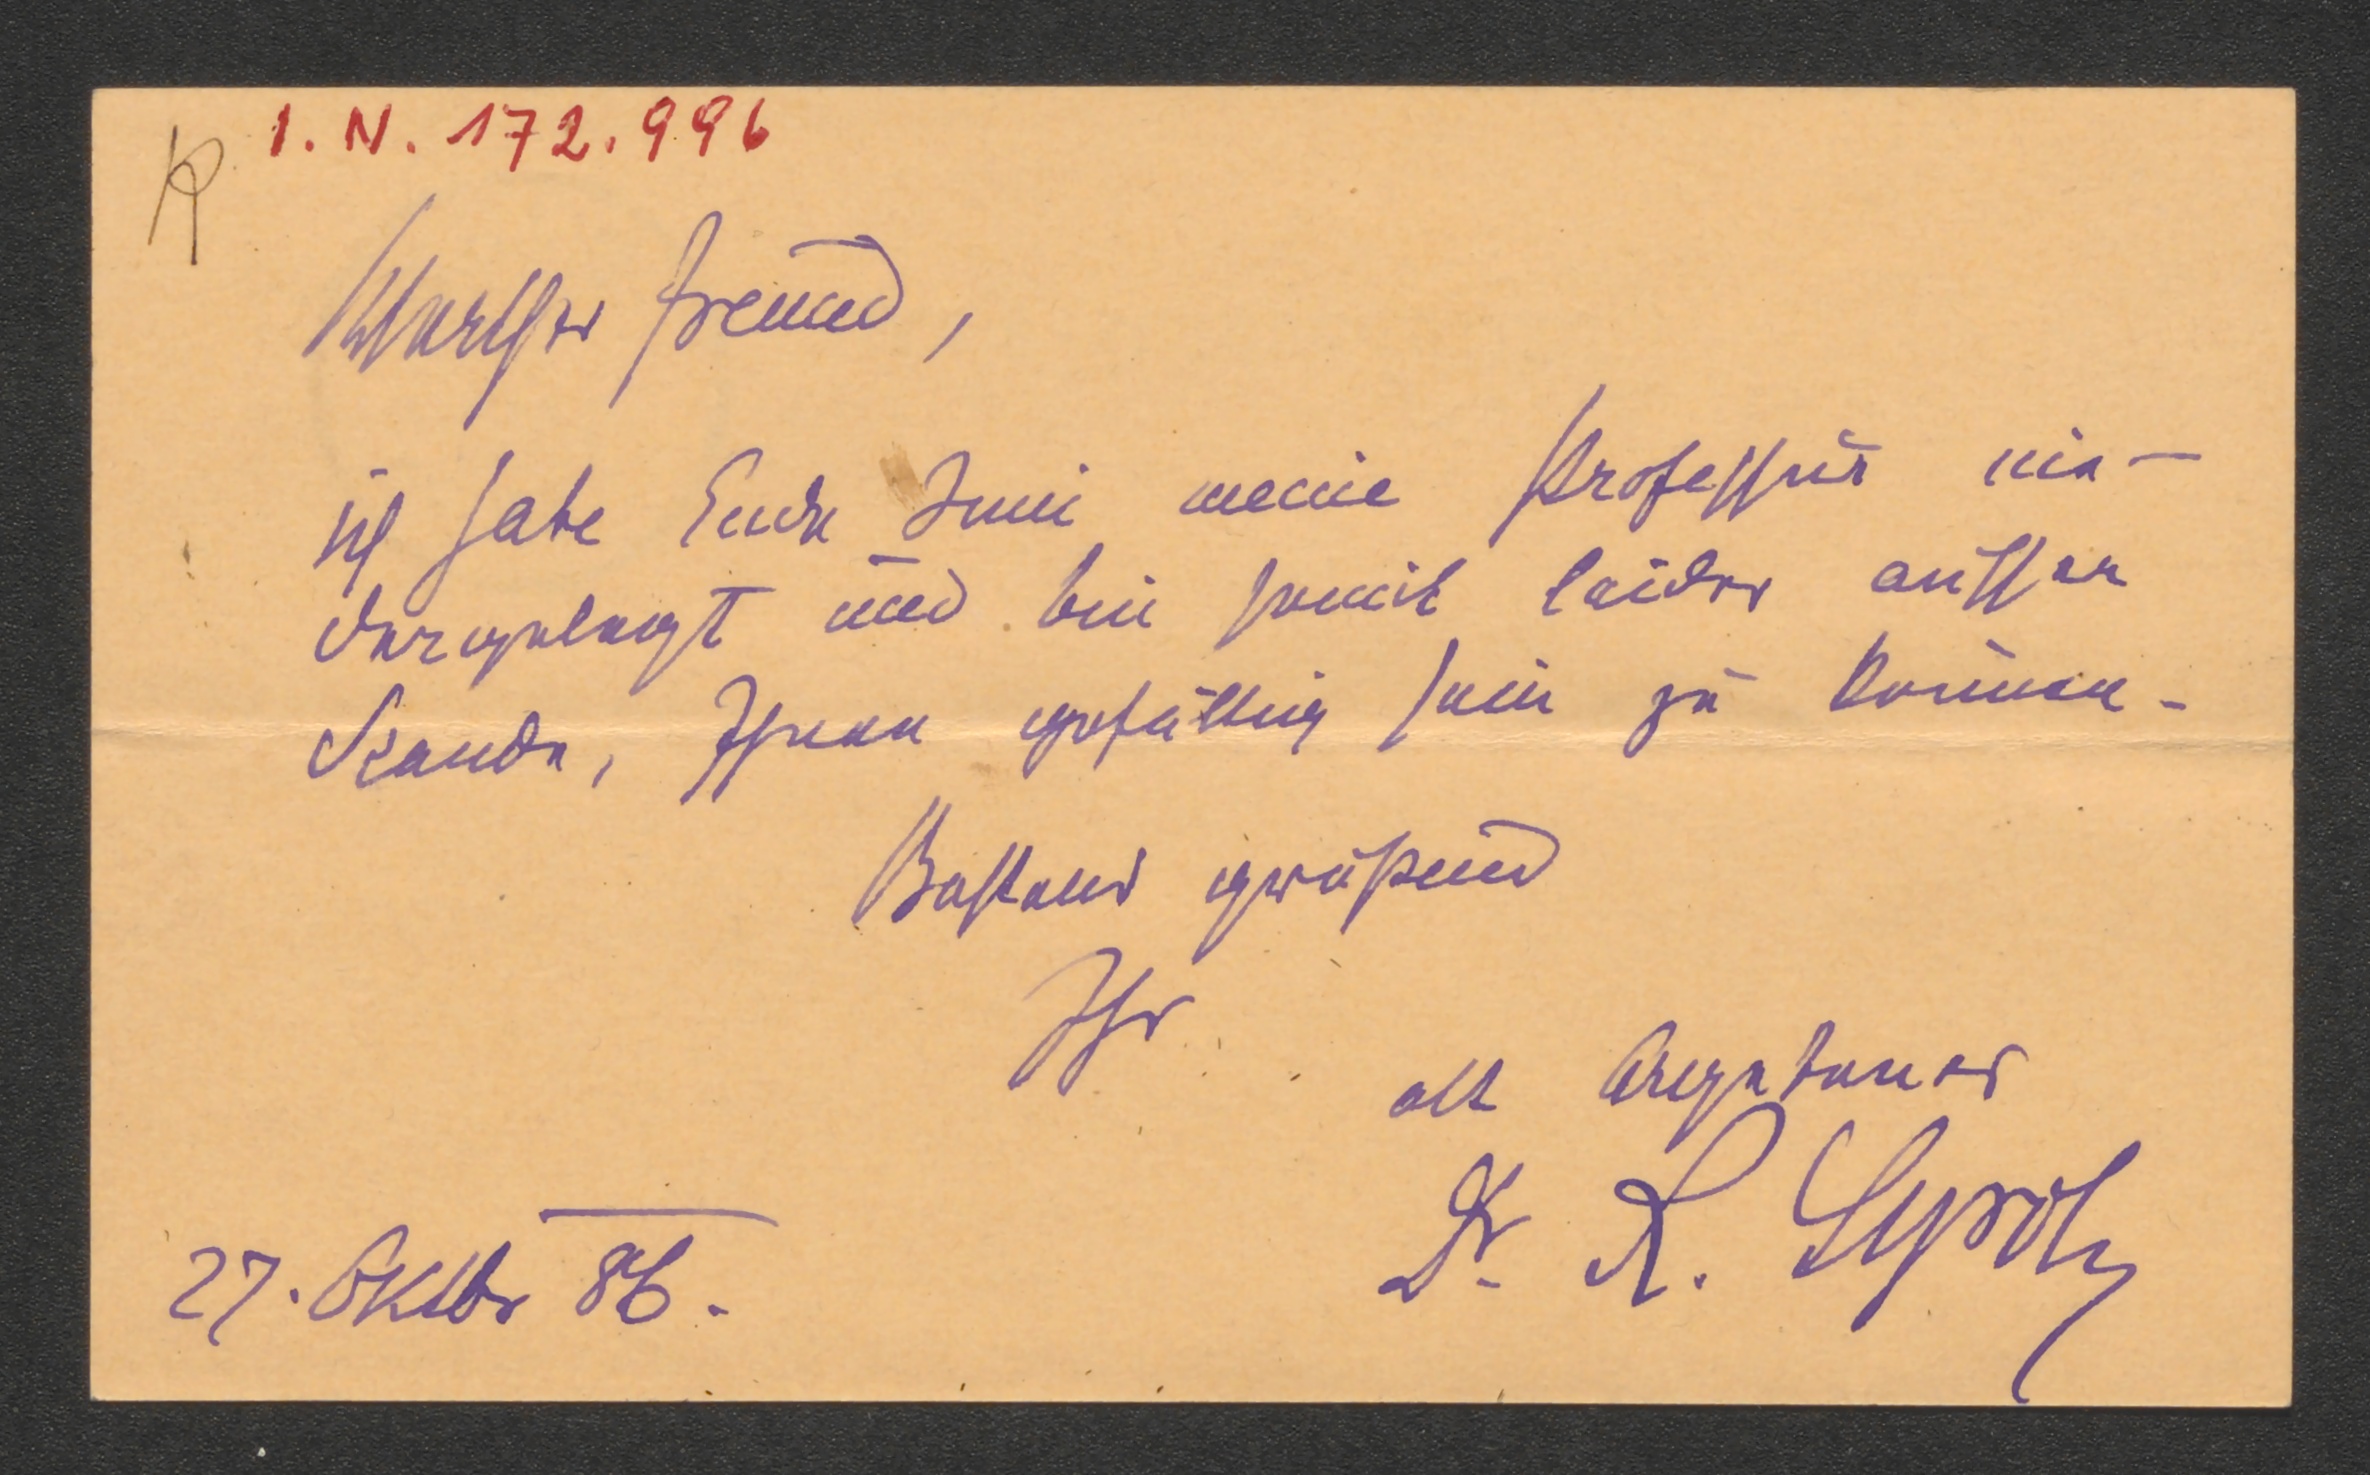 I. N. 172.996
R
Werther Freund,
ich habe Ende Juni meine Professur nie-
dergelegt und bin somit leider ausser
Stande, Ihnen gefällig sein zu können.
Bestens grüßend
Ihr
alt ergebener
Dr. R.
27. Oktbr 86.